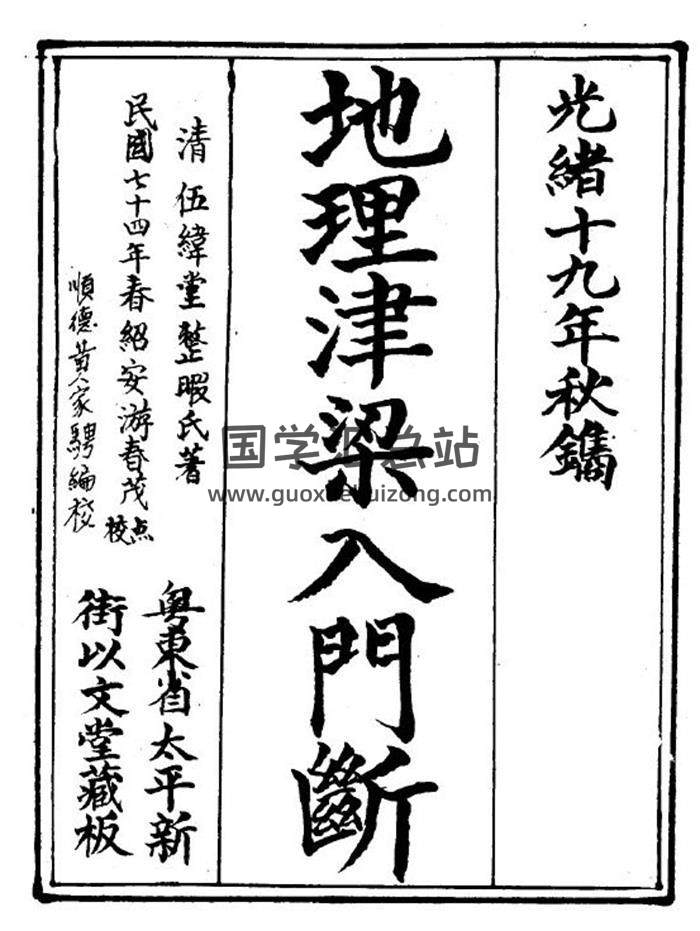 光緒十九年秋鐫
地理津梁入門斷
清 伍緯堂整暇氏著
民國七十四年春紹安游春茂点校
順德黃家騁編校
粤東省太平新
街以文堂藏板
国学汇总站
www.guoxuehuizong.com